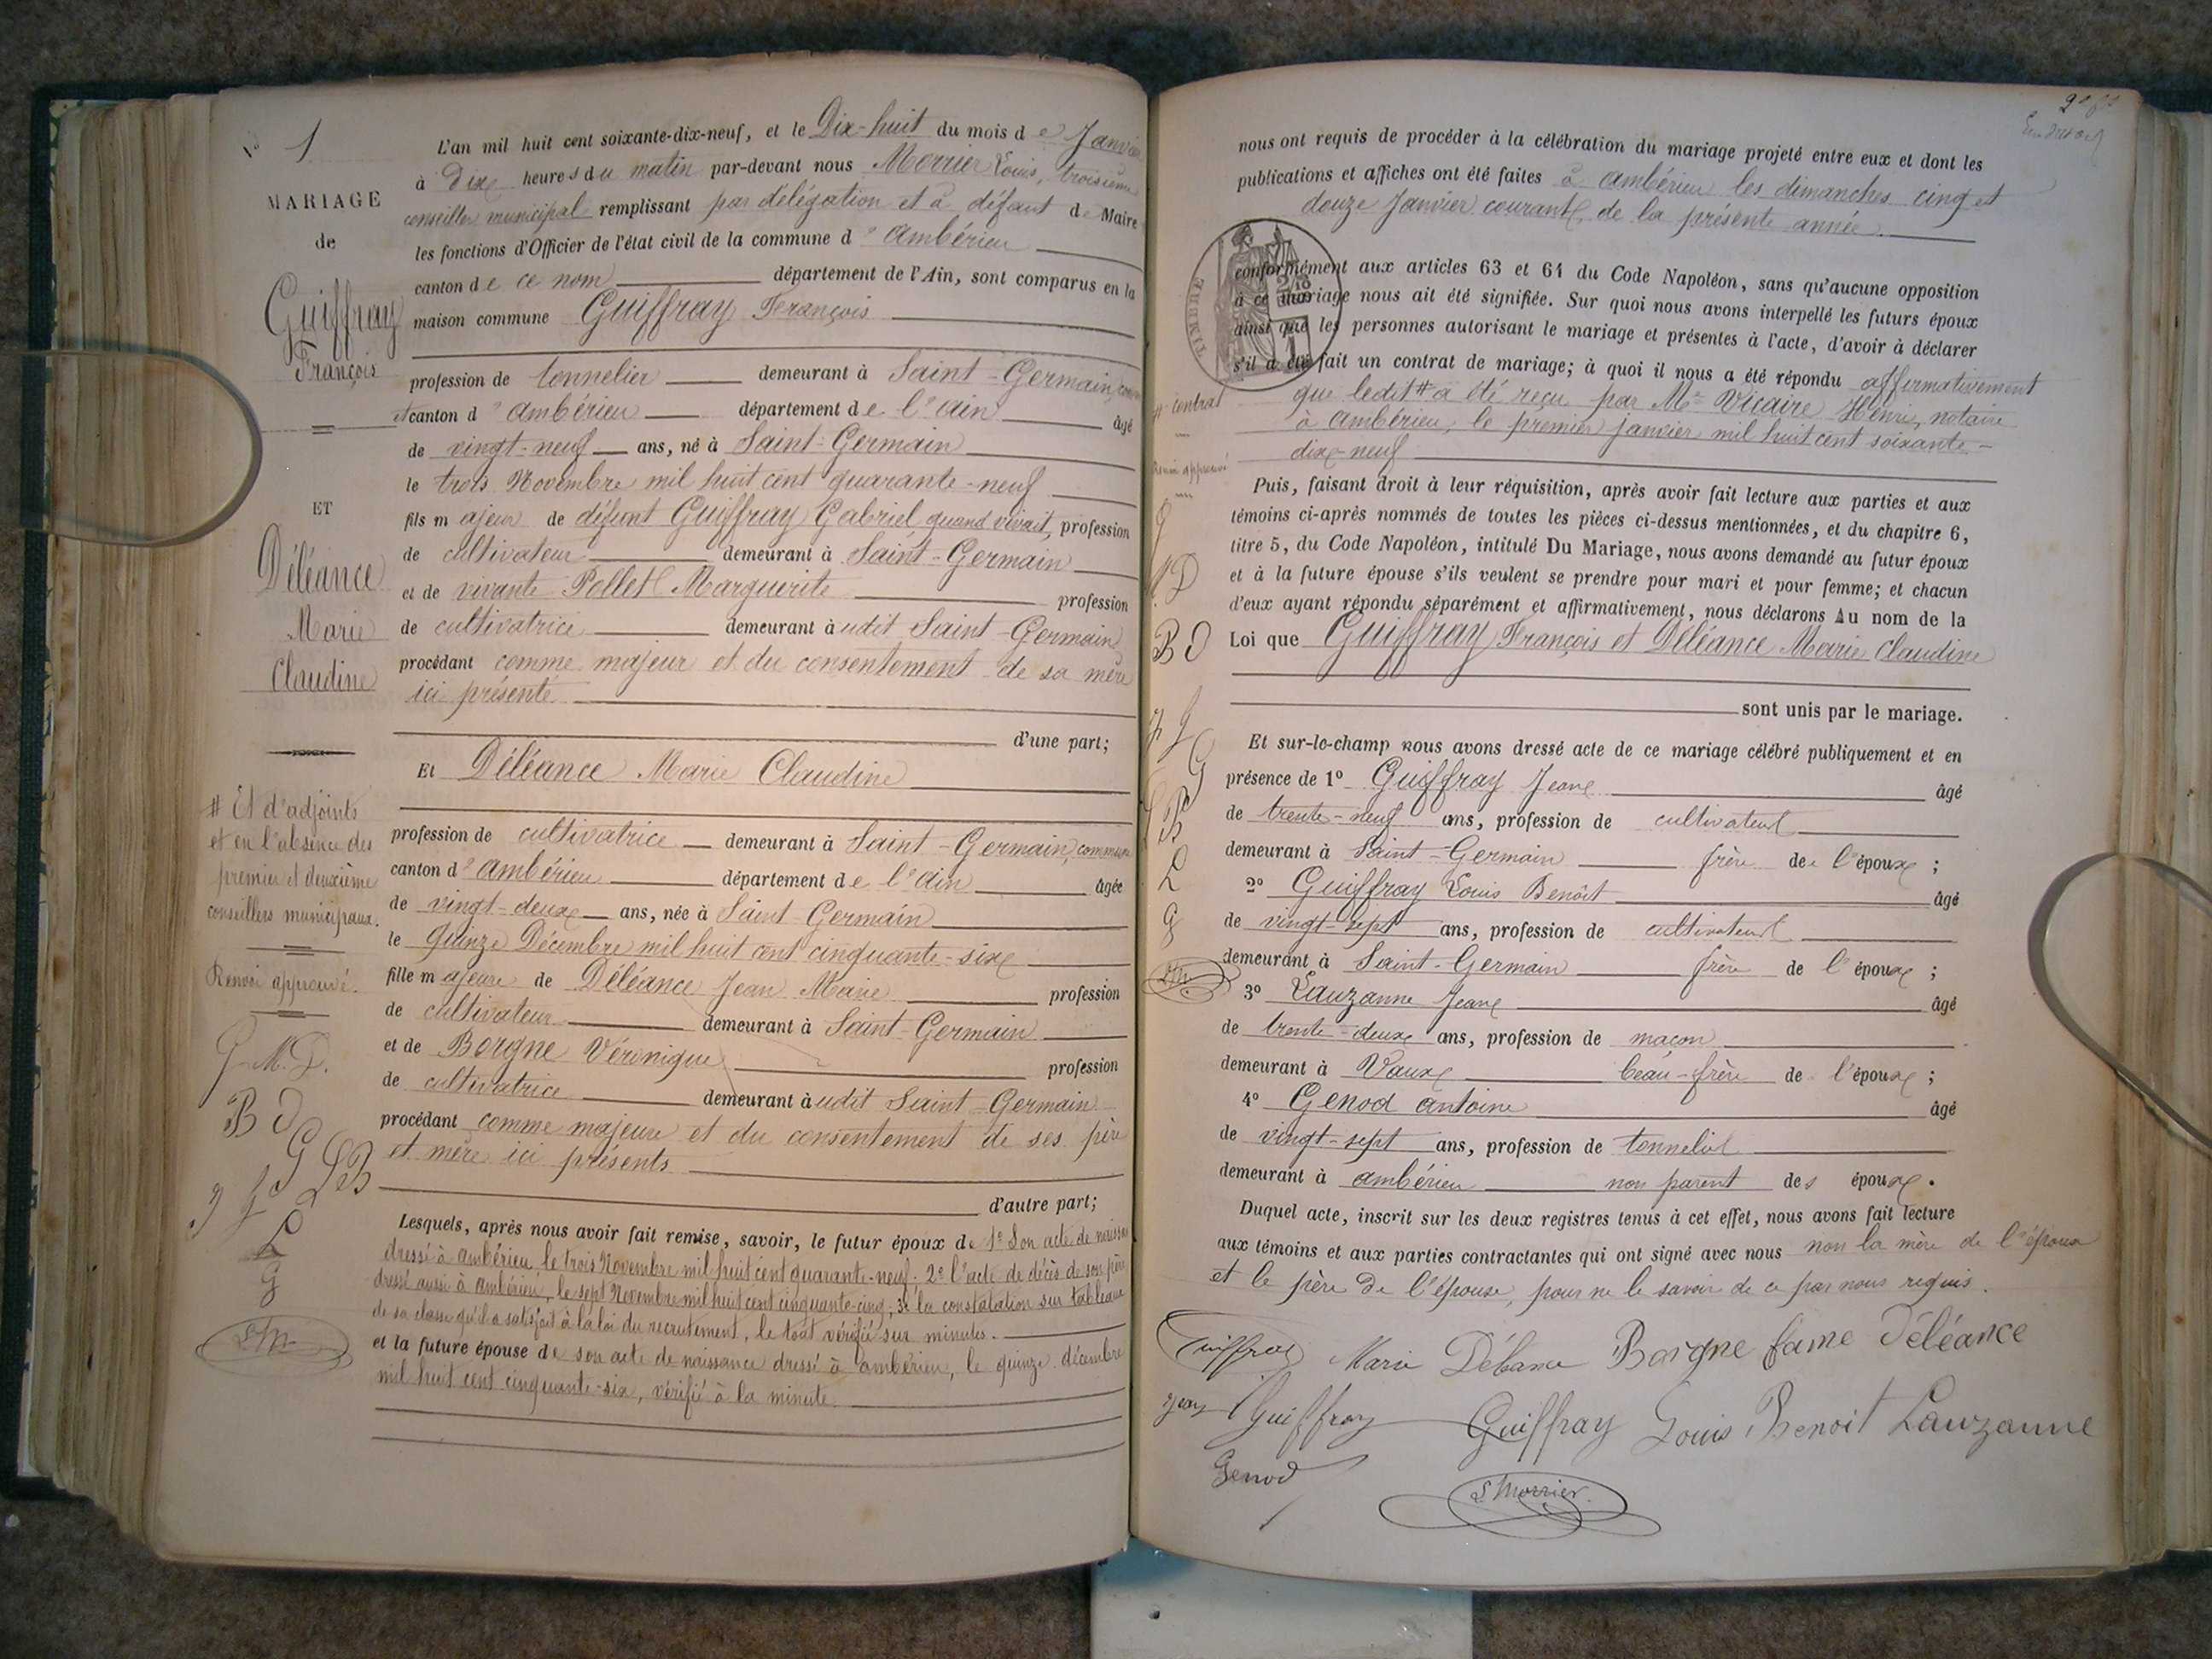 1
MARIAGE
de
Guiffray
François
ET
Déléance
Marie
Claudine
# Et d'adjoints
et en l'absence des
premier et deuxième
conseillers municipaux.
Renvoi approuvé.
G M. D.
B D
G L B
J G
L
G
L M
L'an mil huit cent soixante-dix-neuf, et le Dix-huit du mois de Janvier
à Dix heures du matin par-devant nous Morrier Louis, troisième
conseiller municipal remplissant par délégation et à défaut de Maire
les fonctions d'Officier de l'état civil de la commune d'Ambérieu
canton de ce nom département de l'Ain, sont comparus en la
maison commune Guiffray François
profession de tonnelier demeurant à Saint-Germain,
canton d'Ambérieu département de l'ain âgé
de vingt-neuf ans, né à Saint-Germain
le trois Novembre mil huit cent quarante-neuf
fils majeur de défunt Guiffray Gabriel quand vivait, profession
de cultivateur demeurant à Saint-Germain
et de vivante Pollet Marguerite profession
de cultivatrice demeurant àudit Saint-Germain
procédant comme majeur et du consentement de sa mère
ici présente
d'une part;
Et Déléance Marie Claudine
profession de cultivatrice demeurant à Saint-Germain, commune
canton d'Ambérieu département de l'ain âgée
de vingt-deux ans, née à Saint-Germain
le Quinze Décembre mil huit cent cinquante-six
fille majeure de Déléance Jean Marie profession
de cultivateur demeurant à Saint-Germain
et de Borgne Véronique profession
de cultivatrice demeurant àudit Saint-Germain
procédant comme majeure et du consentement de ses père
et mère ici présents
d'autre part;
Lesquels, après nous avoir fait remise, savoir, le futur époux de 1º Son acte de naissance
dressé à Ambérieu, le trois Novembre mil huit cent quarante-neuf. 2º l'acte de décès de son père
dressé aussi à Ambérieu, le sept Novembre mil huit cent cinquante-cinq; 3º la constatation sur tableau
de sa classe qu'il a satisfait à la loi du recrutement, le tout vérifié sur minutes.
et la future épouse de son acte de naissance dressé à Ambérieu, le quinze décembre
mil huit cent cinquante-six, vérifié à la minute.
nous ont requis de procéder à la célébration du mariage projeté entre eux et dont les
publications et affiches ont été faites à Ambérieu les dimanches cinq et
douze Janvier courant, de la présente année.
TIMBRE
conformément aux articles 63 et 64 du Code Napoléon, sans qu'aucune opposition
à ce mariage nous ait été signifiée. Sur quoi nous avons interpellé les futurs époux
ainsi que les personnes autorisant le mariage et présentes à l'acte, d'avoir à déclarer
s'il a été fait un contrat de mariage; à quoi il nous a été répondu affirmativement
# contrat
que ledit # a été reçu par Me Vicaire Henri, notaire
à Ambérieu, le premier janvier mil huit cent soixante-
dix-neuf
Renvoi approuvé
Puis, faisant droit à leur réquisition, après avoir fait lecture aux parties et aux
témoins ci-après nommés de toutes les pièces ci-dessus mentionnées, et du chapitre 6,
titre 5, du Code Napoléon, intitulé Du Mariage, nous avons demandé au futur époux
et à la future épouse s'ils veulent se prendre pour mari et pour femme; et chacun
d'eux ayant répondu séparément et affirmativement, nous déclarons Au nom de la
Loi que Guiffray François et Déléance Marie Claudine
sont unis par le mariage.
Et sur-le-champ nous avons dressé acte de ce mariage célébré publiquement et en
présence de 1º Guiffray Jean âgé
de trente-neuf ans, profession de cultivateur
demeurant à Saint-Germain frère de l'époux;
2º Guiffray Louis Benoît âgé
de vingt-sept ans, profession de cultivateur
demeurant à Saint-Germain frère de l'époux;
3º Lauzanne Jean âgé
de trente-deux ans, profession de maçon
demeurant à Vaux beau-frère de l'époux;
4º Genod Antoine âgé
de vingt-sept ans, profession de tonnelier
demeurant à Ambérieu non parent des époux.
Duquel acte, inscrit sur les deux registres tenus à cet effet, nous avons fait lecture
aux témoins et aux parties contractantes qui ont signé avec nous non la mère de l'époux
et le père de l'épouse, pour ne le savoir de ce par nous requis.
Guiffray Marie Déléance Borgne fame Déléance
Jean Guiffray Guiffray Louis Benoit Lauzanne
Genod
L Morrier